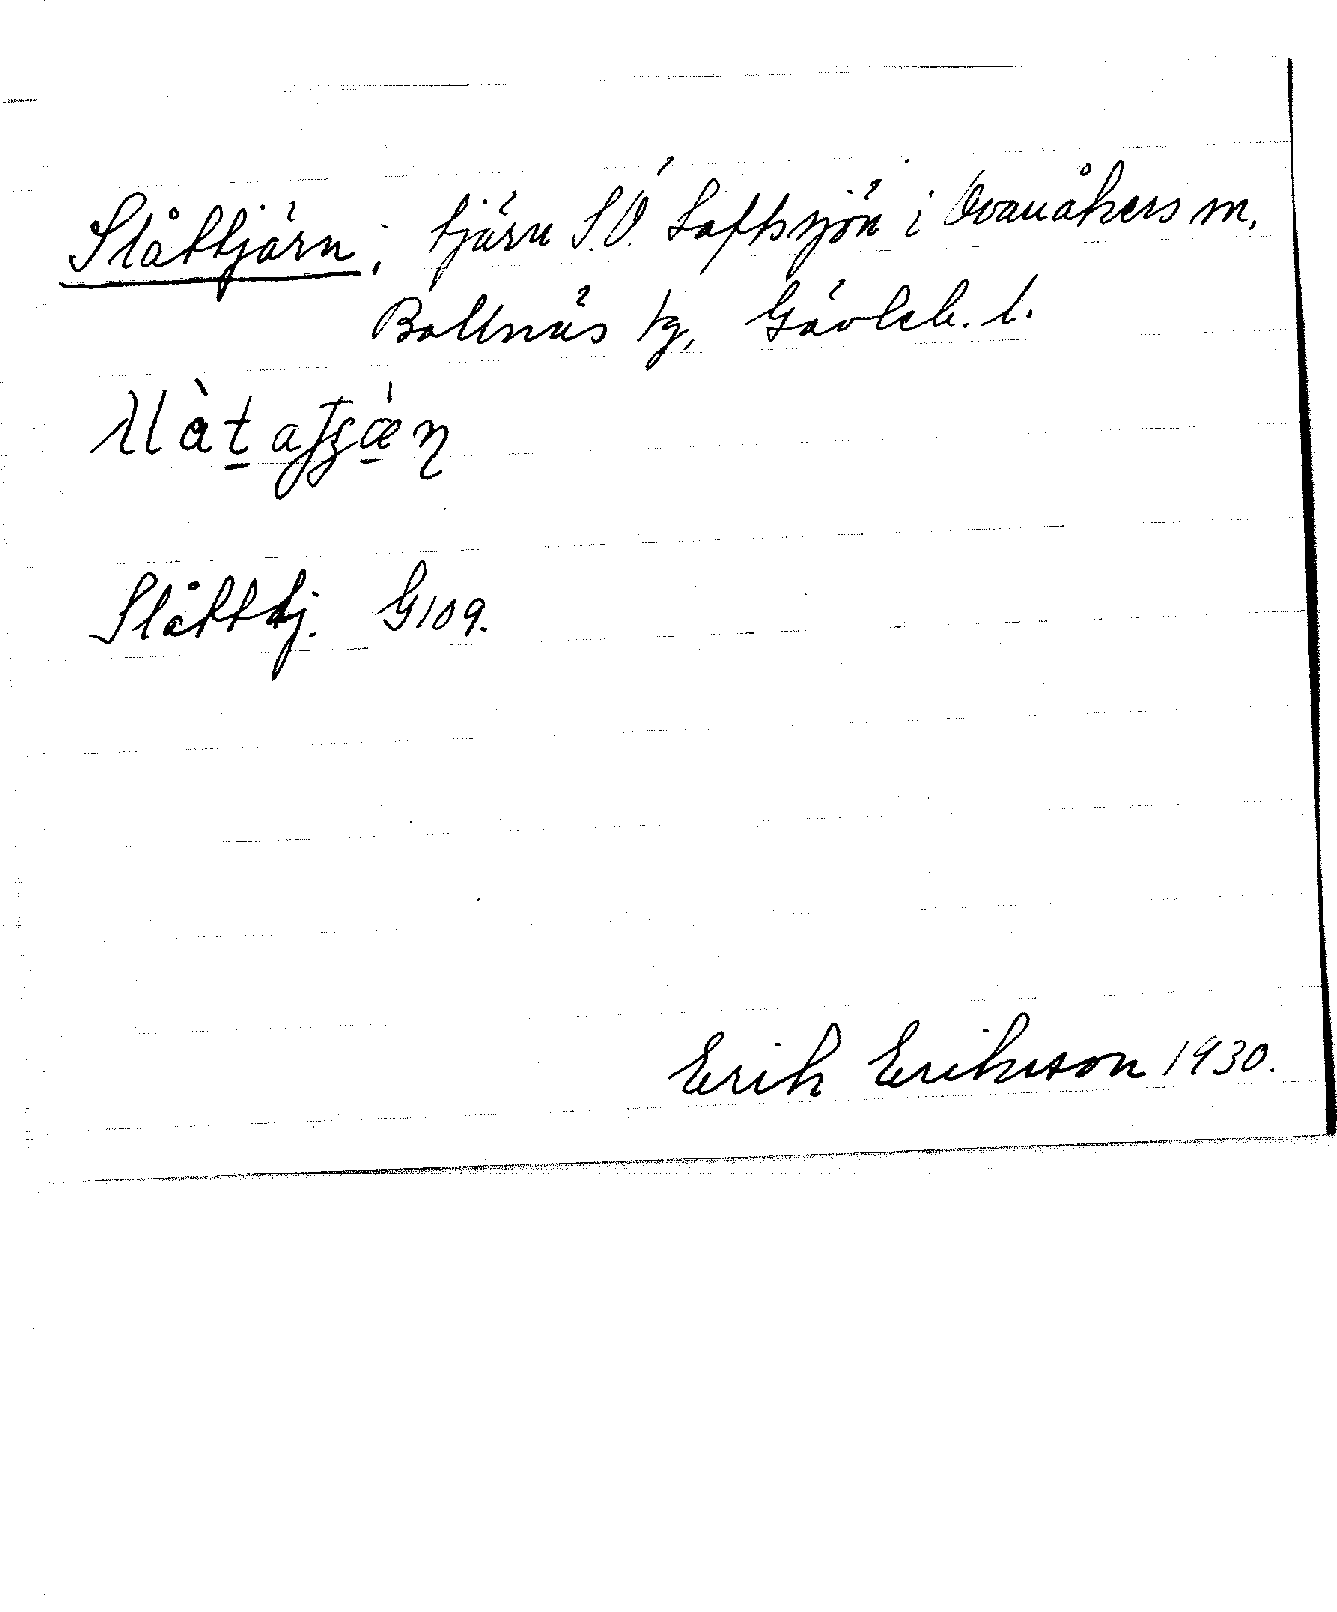 Slåttjärn; tjärn S.Ö. Loftssjön i Ovanåkers sn,
Bollnäs tg, Gävleb. l.
Slåtttj. G109.
Erik Eriksson 1930.